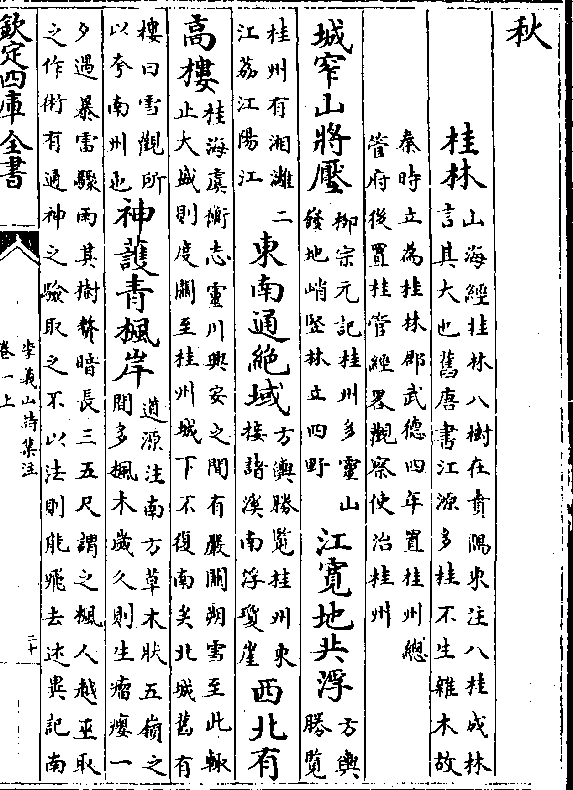 秋
桂林
山海經桂林八樹在賁隅東注八桂成林
言其大也舊唐書江源多桂不生雜木故
秦時立為桂林郡武德四年置桂州總
管府後置桂管經畧觀察使治桂州
城窄山將壓
柳宗元記桂州多靈山
發地峭竪林立四野
江寛地共浮
方輿
勝覽
桂州有湘灕二
江荔江陽江
東南通絶域
方輿勝覽桂州東
接諸溪南浮瓊崖
西北有
高樓
桂海虞衡志靈川興安之間有嚴關朔雪至此輒
止大盛則度關至桂州城下不復南矣北城舊有
樓曰雪觀所
以夸南州也
神護青楓岸
道源注南方草木狀五嶺之
間多楓木歲久則生瘤癭一
夕遇暴雷驟雨其樹贅暗長三五尺謂之楓人越巫取
之作術有通神之驗取之不以法則能飛去述異記南
欽定四庫全書
李義山詩集注
卷一上
二十